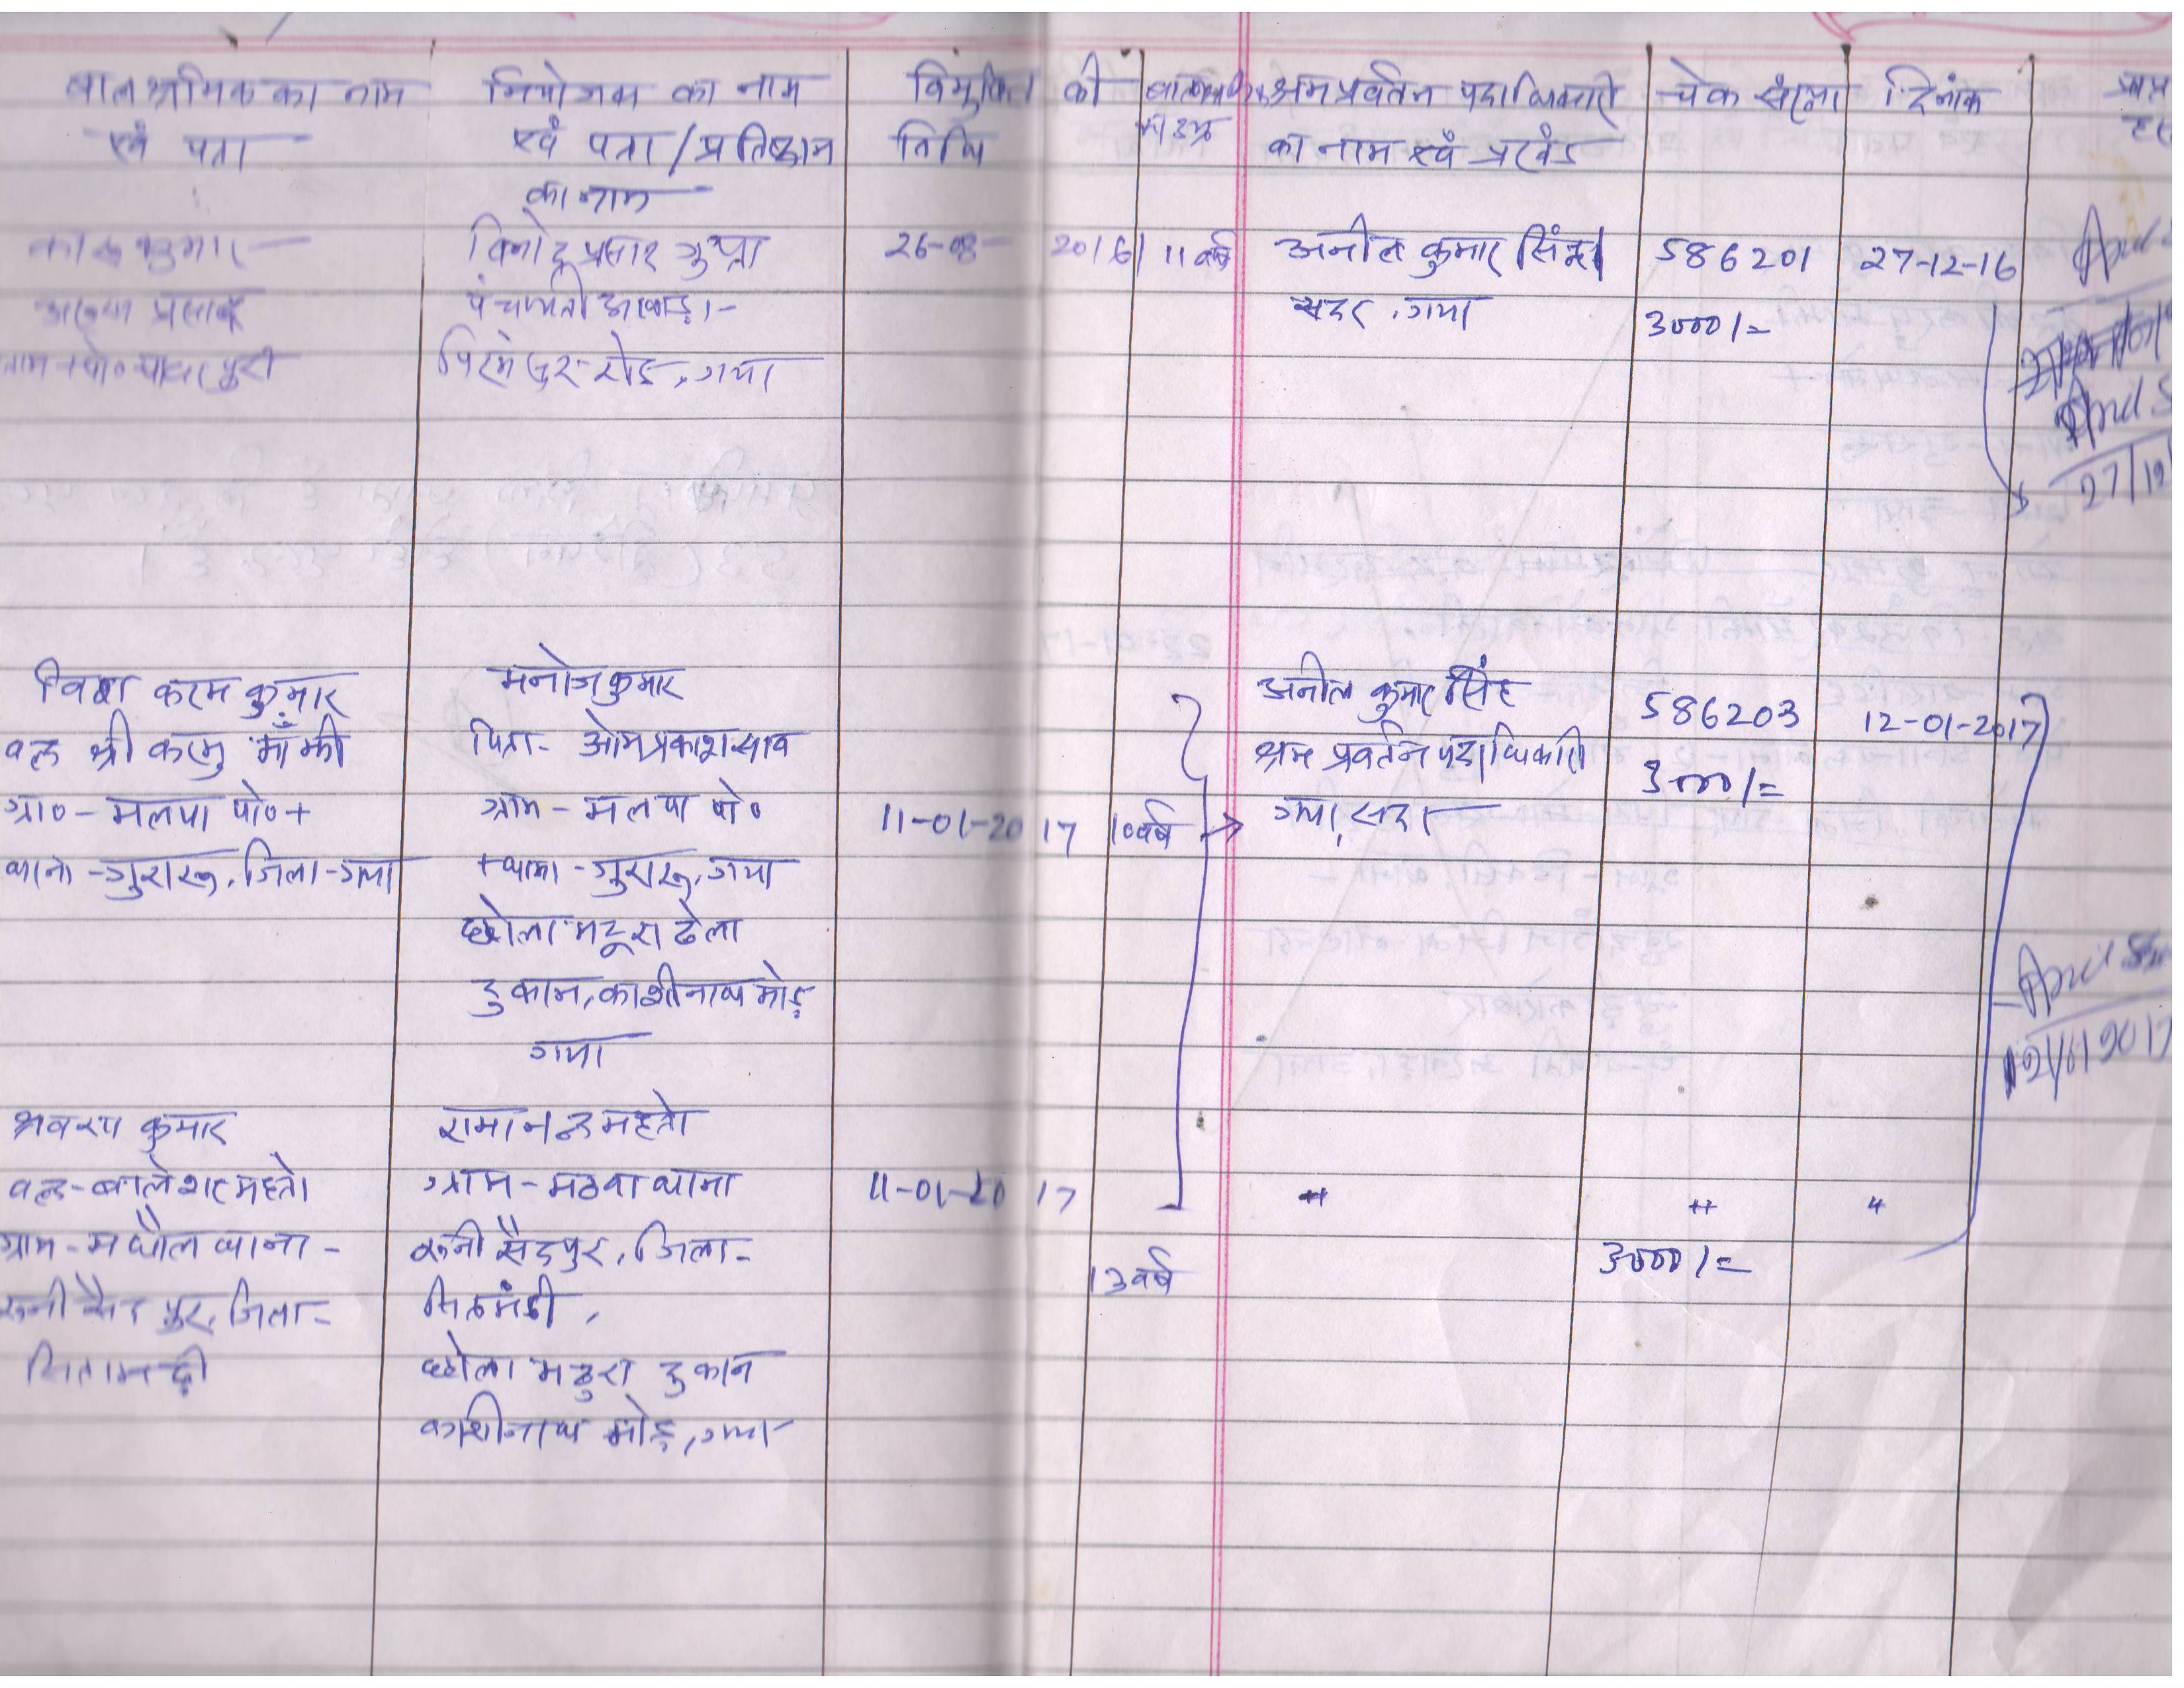 बाल श्रमिक का नाम
एवं पता
नियोजक का नाम
एवं पता / प्रतिष्ठान
का नाम
विमुक्ति की
तिथि
श्रम प्रवर्तन पदाधिकारी
का नाम एवं प्रखंड
चेक संख्या
दिनांक
कुमार
प्रसाद
विनोद प्रसाद गुप्ता
पंचायती अखाड़ा
रोड, गया
26-08-2016
11 वर्ष
अनील कुमार सिंह
सदर, गया
586201
3000/=
27-12-16
Anil
Anil S
27/12
करम कुमार
वल्द श्री कारू माँझी
ग्रा०-मलपा पो०+
थाना-गुरारू, जिला-गया
मनोज कुमार
पिता- ओमप्रकाश साव
ग्राम-मलपा पो०
+थाना-गुरारू, गया
छोला भटूरा ठेला
दुकान, काशीनाथ मोड़
गया
11-01-2017
10 वर्ष
अनील कुमार सिंह
श्रम प्रवर्तन पदाधिकारी
गया, सदर
586203
3000/=
12-01-2017
Anil
12/01/2017
श्रवण कुमार
वल्द-बालेशर महतो
ग्राम-मधौल थाना-
रुनी सैदपुर, जिला-
सितामढ़ी
रामानन्द महतो
ग्राम-मठवा थाना
रुनी सैदपुर, जिला-
छोला भठुरा दुकान
काशीनाथ मोड़, गया
11-01-2017
13 वर्ष
"
"
3000/=
"